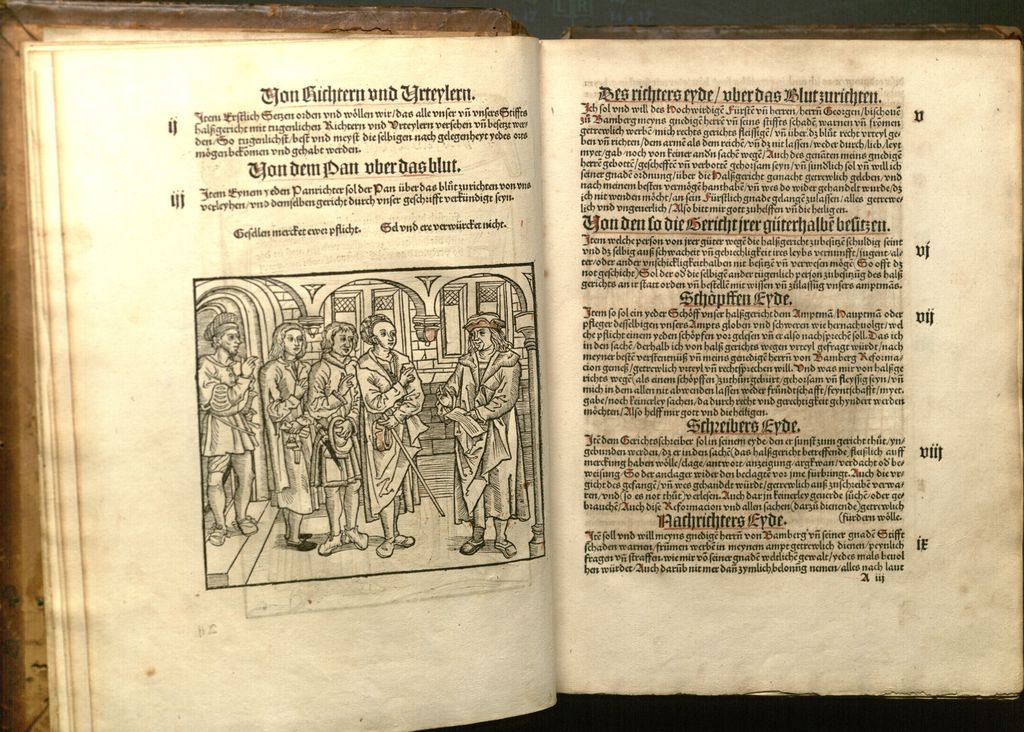 Von Richtern vnd Vrteylern.
ij
Item Erstlich Setzen orden vnd wöllen wir/das alle vnser vñ vnsers Stiffts
halßgericht mit tugenlichen Richtern vnd Vrteylern versehen vñ besetzt wer-
den/So tugenlichst/best vnd meyst die selbigen nach gelegenheyt yedes orts
mögen bekomen vnd gehabt werden.
Von dem Pan vber das blut.
iij
Item Eynem yeden Panrichter sol der Pan über das blůt zurichten von vns
verleyhen/vnd demselben gericht durch vnser geschrifft verkündigt seyn.
Gesellen mercket ewer pflicht. Gel vnd ere verwürcket nicht.
Des richters eyde/vber das Blut zurichten.
v
Ich sol vnd will des Hochwirdigē Fürstē vñ herren/herrñ Georgen/bischouē
zů Bamberg meyns gnedigē herrē vñ seins stiffts schadē warnen vñ fromen
getrewlich werbē/mich rechts gerichts fleissigē/vñ über dz blůt recht vrteyl ge-
ben vñ richten/dem armē als dem reichē/vñ dz nit lassen/weder durch/lieb/leyt
myet/gab noch von keiner andn̄ sachē wegē/Auch des genātē meins gnedigē
herrē gebotte/gescheffte vñ verbotte gehorsam seyn/vñ sündlich sol vñ will ich
seiner gnadē ordnung/über die Halßgericht gemacht getrewlich geleben/vnd
nach meinem besten vermögē hanthabē/vñ wes do wider gehandelt wurde/dz
ich nit wenden möcht/an sein Fürstlich gnade gelangē zulassen/alles getrewe-
lich vnd vngeuerlich/Also bitt mir got zuhelffen vñ die heiligen.
Von den so die Gericht jrer güterhalbē besitzen.
vj
Item welche person von jrer güter wegē die halßgericht zubesitzē schuldig seint
vnd dz selbig auß schwacheit vñ gebrechligkeit ires leybs vernunfft/jugent/al-
ter/oder ander vnschickligkeit halben nit besitzē vñ verwesen mögē So offt dz
not geschicht/Sol der od̄ die selbigē ander tugenlich person zubesitzūg des halß
gerichts an ir statt orden vñ bestellē mit wissen vñ zulassūg vnsers amptmās.
Schöpffen Eyde.
vij
Item so sol ein yeder Schöff vnser halßgericht dem Amptmā/Hauptman oder
pfleger desselbigen vnsers Ampts globen vnd schweren wie hernach uolgt/wel
che pflicht einem yeden schöpfen vor gelesen vñ er also nachsprechē soll. Das ich
in den sachē/derhalb ich von halß gerichts wegen vrteyl gefragt würdt/nach
meyner bestē verstentnůß vñ meins genedigē herrñ von Bamberg Reforma-
cion gemeß/getrewlich vrteyl vñ rechtsprechen will. Vnd was mir von halßge
richts wegē/als einem schöpffen zuthůn gebürt/gehorsam vñ fleyssig seyn/vñ
mich in dem allen nit abwenden lassen weder freündtschafft/feyntschafft/myet.
gabe/noch keinerley sachen/da durch recht vnd gerechtigkeit gehyndert werden
möchten/Also helff mir gott vnd die heiligen.
Schreibers Eyde.
viij
Itē dem Gerichtsschreiber sol in seinem eyde/den er sunst zum gericht thůt/yn-
gebunden werden/dz er in den sachē/das halßgericht betreffende fleißlich auff
merckung haben wölle/clage/antwort/anzeigung/argkwan/verdacht od̄ be-
weisung/So der anclager wider den beclagtē vor jme fürbringt. Auch die vr-
gicht des gefangē/vñ wes gehandelt würdt/getrewlich auß zuschreibē verwa-
ren/vnd (so es not thůt) verlesen. Auch dar in keinerley geuerde sůchē/oder ge-
brauchē/Auch dise Reformacion vnd allen sachen (darzů dienende) getrewlich
(fürdern wölle.
Nachrichters Eyde.
ix
Itē soll vnd will meyns gnedigē herrñ von Bamberg/vñ seiner gnadē Stifft
schaden warnen/frümen werbē/in meynen ampt getrewlich dienen/peynlich
fragen vñ straffen/wie mir vō seiner gnadē weltlichē gewalt/yedes mals beuol
hen würdet/Auch darūb nit mer dañ zymlich belonūg nemen/alles nach laut
A iij